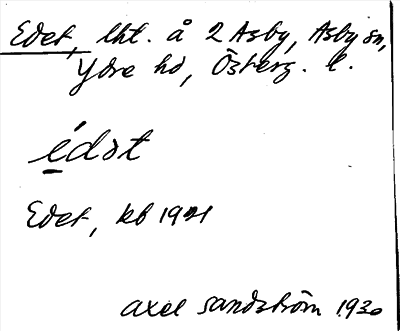 Edet, lht. å 2 Asby, Asby sn,
Ydre hd, Österg. l.
édət
Edet, kb 1921
Axel Sandström 1930